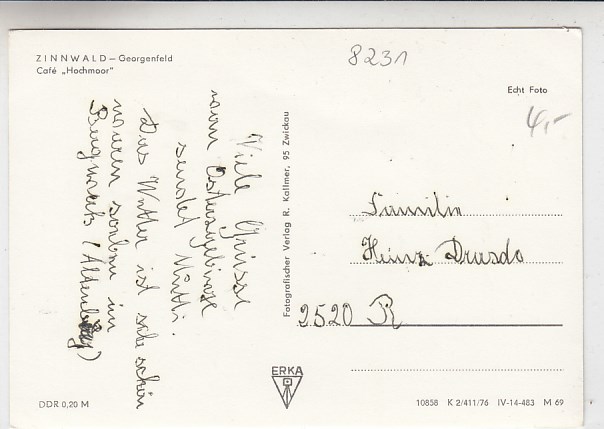 ZINNWALD – Georgenfeld
Café „Hochmoor"
8231
Echt Foto
4,-
Viele Grüsse
vom Osterzgebirge
sendet Mutti.
Das Wetter ist sehr schön
waren soeben im
(Altenberg)
Fotografischer Verlag R. Kallmer, 95 Zwickau
Familie
Heinz Drusdo
2520 R
ERKA
DDR 0,20 M
10858 K 2/411/76 IV-14-483 M 69